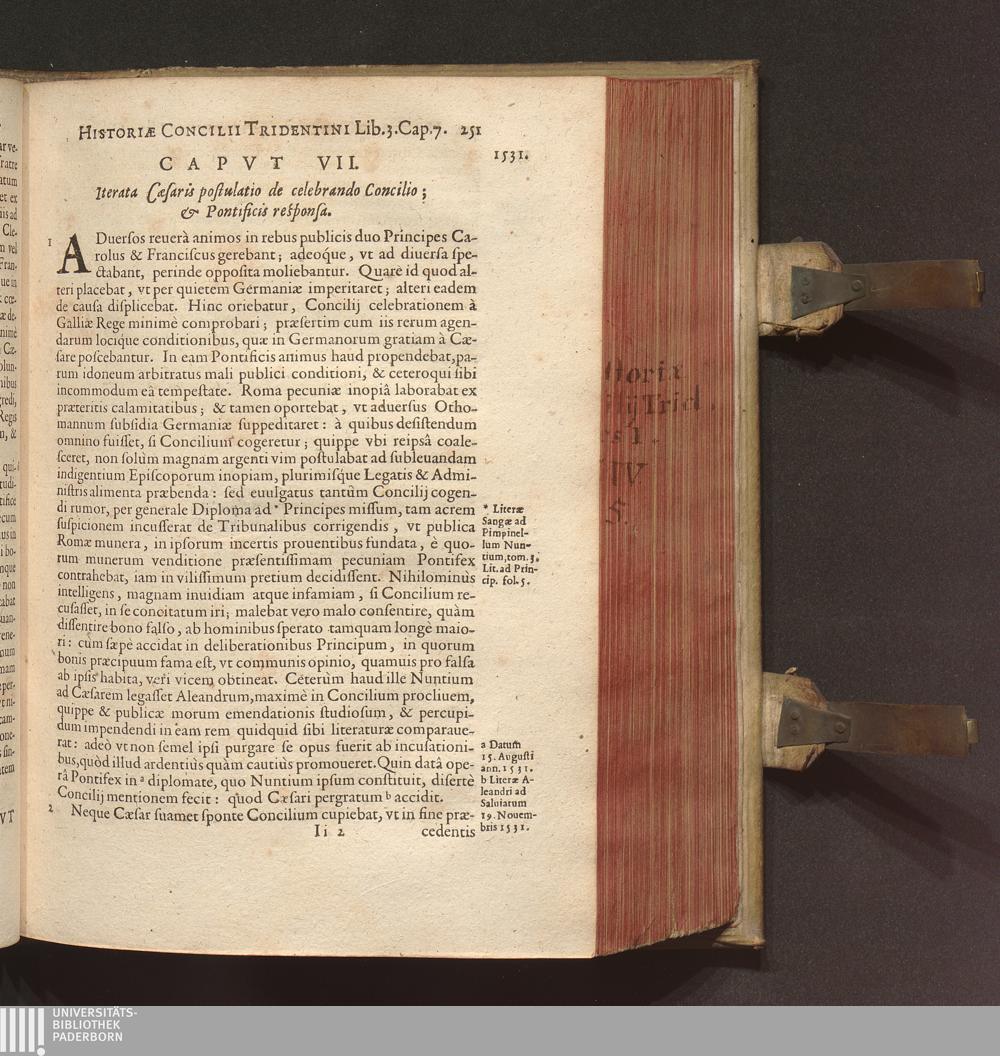 HISTORIÆ CONCILII TRIDENTINI Lib.3.Cap.7. 251
1531.
CAPVT VII.
Iterata Cæſaris poſtulatio de celebrando Concilio;
& Pontificis reſponſa.
1 ADuerſos reuerà animos in rebus publicis duo Principes Ca-
rolus & Franciſcus gerebant; adeoque, vt ad diuerſa ſpe-
ctabant, perinde oppoſita moliebantur. Quare id quod al-
teri placebat, vt per quietem Germaniæ imperitaret; alteri eadem
de cauſa diſplicebat. Hinc oriebatur, Concilij celebrationem à
Galliæ Rege minimè comprobari; præſertim cum iis rerum agen-
darum locique conditionibus, quæ in Germanorum gratiam à Cæ-
ſare poſcebantur. In eam Pontificis animus haud propendebat, pa-
rum idoneum arbitratus mali publici conditioni, & ceteroqui ſibi
incommodum eâ tempeſtate. Roma pecuniæ inopiâ laborabat ex
præteritis calamitatibus; & tamen oportebat, vt aduerſus Otho-
mannum ſubſidia Germaniæ ſuppeditaret: à quibus deſiſtendum
omnino fuiſſet, ſi Concilium cogeretur; quippe vbi reipsâ coale-
ſceret, non ſolùm magnam argenti vim poſtulabat ad ſubleuandam
indigentium Epiſcoporum inopiam, plurimiſque Legatis & Admi-
niſtris alimenta præbenda: ſed euulgatus tantùm Concilij cogen-
di rumor, per generale Diploma ad * Principes miſſum, tam acrem
ſuſpicionem incuſſerat de Tribunalibus corrigendis, vt publica
Romæ munera, in ipſorum incertis prouentibus fundata, è quo-
rum munerum venditione præſentiſſimam pecuniam Pontifex
contrahebat, iam in viliſſimum pretium decidiſſent. Nihilominùs
intelligens, magnam inuidiam atque infamiam, ſi Concilium re-
cuſaſſet, in ſe concitatum iri; malebat vero malo conſentire, quàm
diſſentire bono falſo, ab hominibus ſperato tamquam longè maio-
ri: cùm ſæpè accidat in deliberationibus Principum, in quorum
bonis præcipuum fama eſt, vt communis opinio, quamuis pro falſa
ab ipſis habita, veri vicem obtineat. Ceterùm haud ille Nuntium
ad Cæſarem legaſſet Aleandrum, maximè in Concilium procliuem,
quippe & publicæ morum emendationis ſtudioſum, & percupi-
dum impendendi in eam rem quidquid ſibi literaturæ comparaue-
rat: adeò vt non ſemel ipſi purgare ſe opus fuerit ab incuſationi-
bus, quòd illud ardentiùs quàm cautiùs promoueret. Quin datâ ope-
râ Pontifex in a diplomate, quo Nuntium ipſum conſtituit, diſertè
Concilij mentionem fecit: quod Cæſari pergratum b accidit.
2 Neque Cæſar ſuamet ſponte Concilium cupiebat, vt in fine præ-
Ii 2 cedentis
* Literæ
Sangæ ad
Pimpinel-
lum Nun-
tium, tom. 3.
Lit. ad Prin-
cip. fol. 5.
a Datum
15. Auguſti
ann. 1531.
b Literæ A-
leandri ad
Saluiatum
19. Nouem-
bris 1531.
UNIVERSITÄTS-
BIBLIOTHEK
PADERBORN